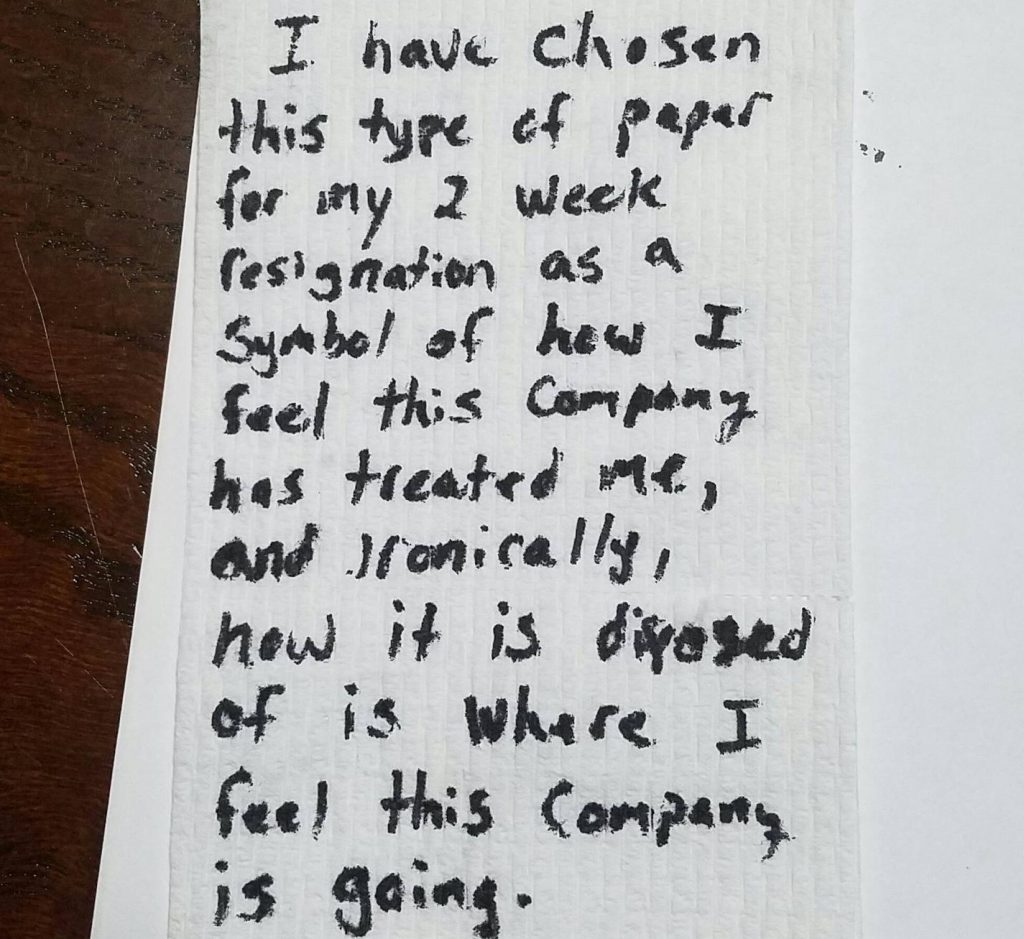 I have chosen
this type of paper
for my 2 week
resignation as a
symbol of how I
feel this company
has treated me,
and ironically,
how it is disposed
of is where I
feel this company
is going.